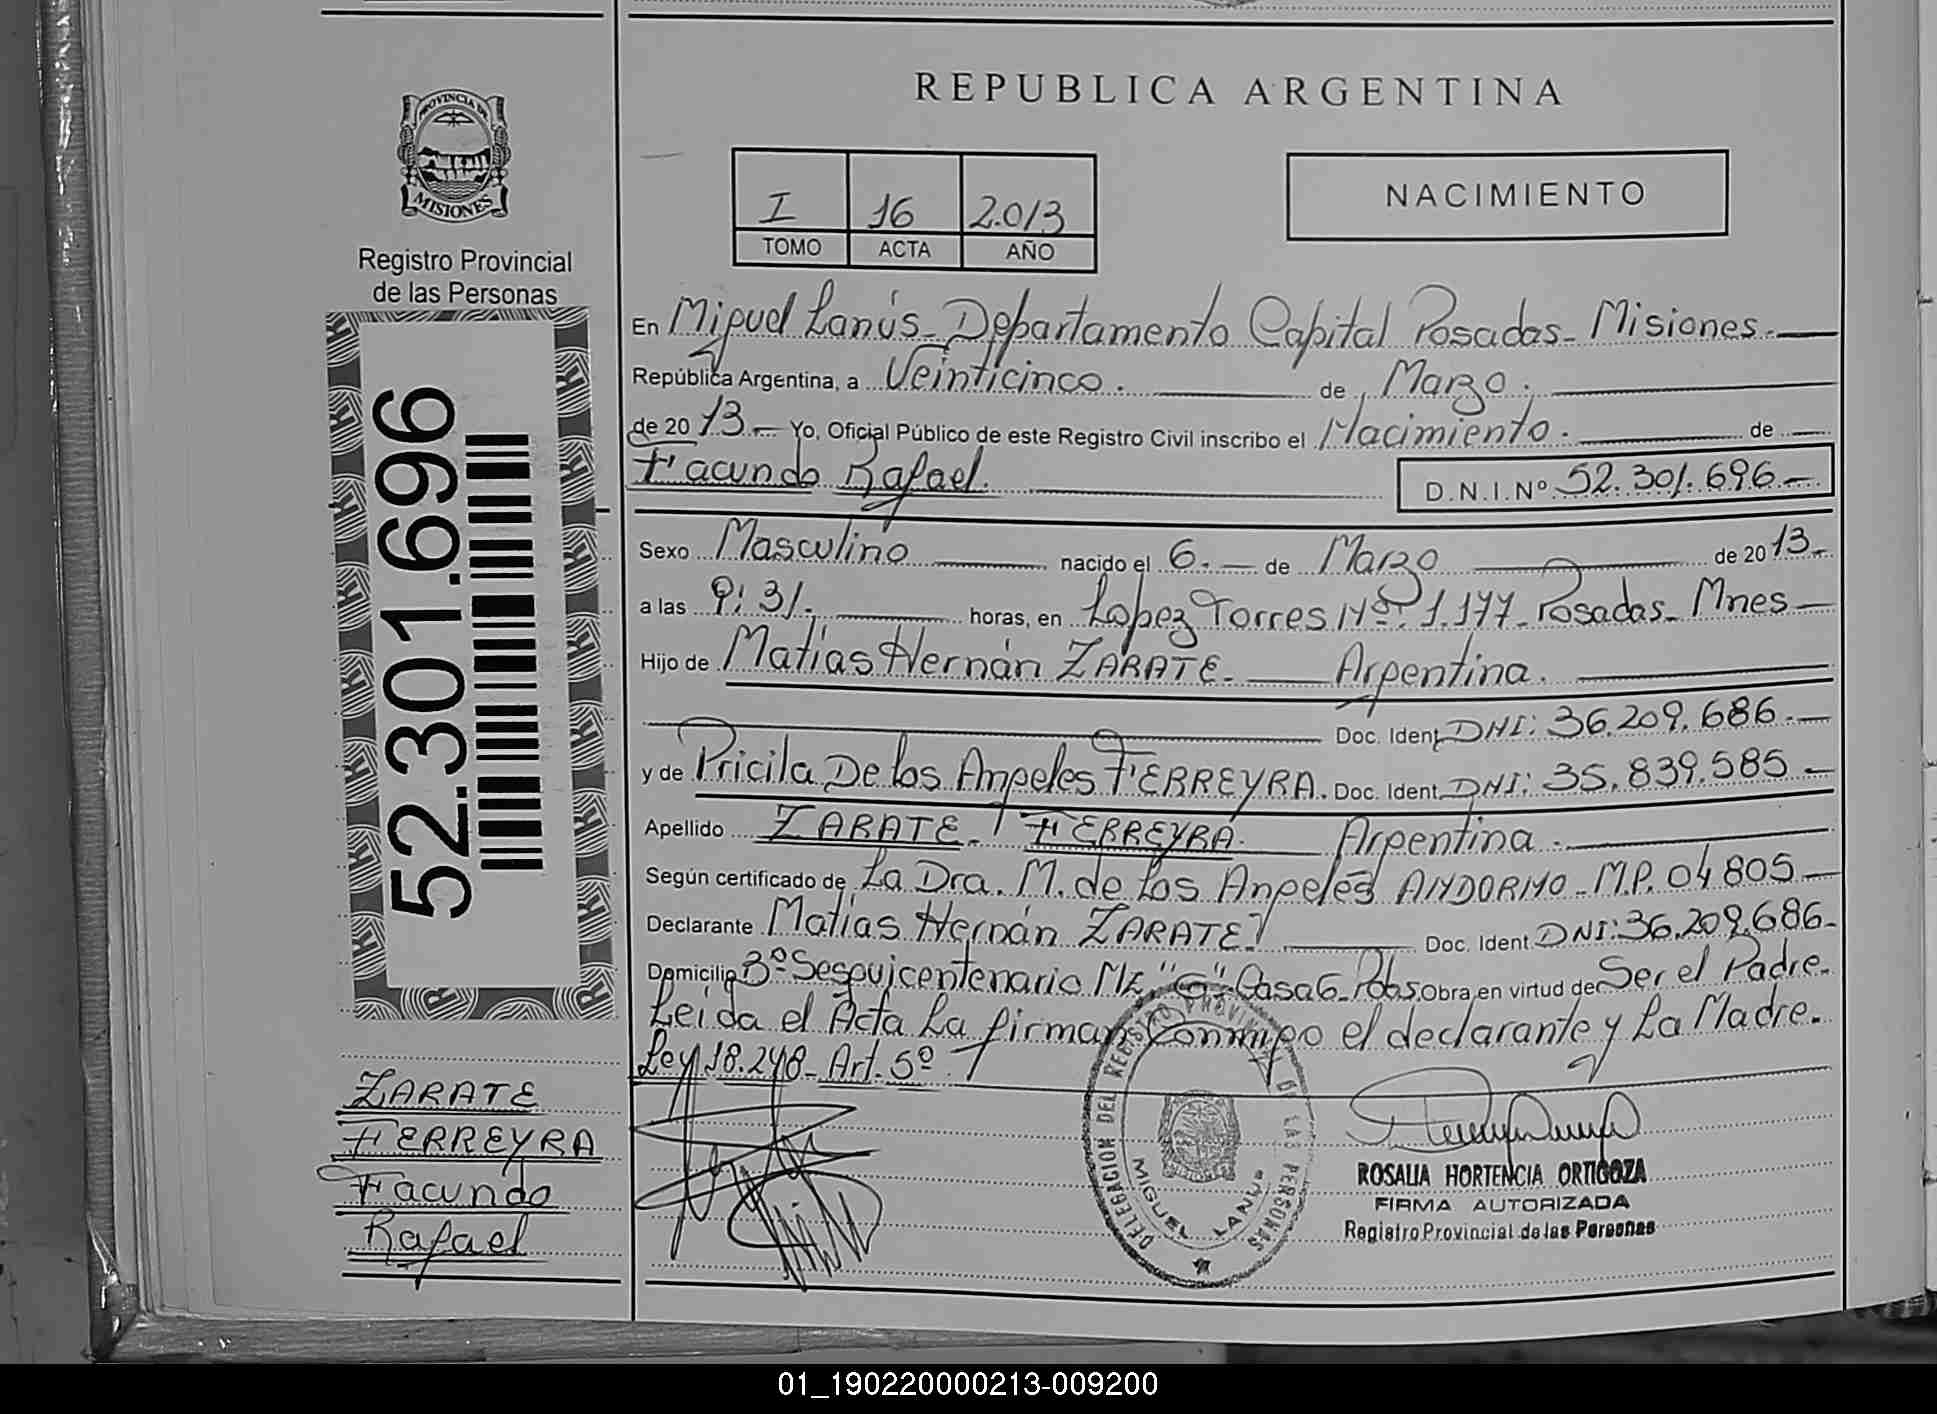 PROVINCIA DE
MISIONES
Registro Provincial
de las Personas
52.301.696
ZARATE
FERREYRA
Facundo
Rafael
REPUBLICA ARGENTINA
I 16 2.013
TOMO ACTA AÑO
NACIMIENTO
En Miguel Lanús - Departamento Capital Posadas - Misiones.
República Argentina, a Veinticinco. de Marzo.
de 20 13. Yo, Oficial Público de este Registro Civil inscribo el Nacimiento. de
Facundo Rafael. D.N.I.Nº 52.301.696
Sexo Masculino nacido el 6. de Marzo de 20 13.
a las 9:31. horas, en Lopez Torres Nº 1.177 - Posadas - Mnes
Hijo de Matías Hernán ZARATE. Argentina.
Doc. Ident. DNI: 36.209.686.
y de Pricila De los Angeles FERREYRA. Doc. Ident. DNI: 35.839.585
Apellido ZARATE FERREYRA. Argentina.
Según certificado de La Dra. M. de los Angeles ANDORNO - M.P. 04805
Declarante Matías Hernán ZARATE Doc. Ident. DNI: 36.209.686.
Domicilio Bº Sesquicentenario Mz "G" Casa 6 - Pdas. Obra en virtud de Ser el Padre.
Leída el Acta La firman Conmigo el declarante y La Madre.
Ley 18.248 - Art. 5º
DELEGACION DEL REGISTRO PROVINCIAL DE LAS PERSONAS
MIGUEL LANUS
ROSALIA HORTENCIA ORTIGOZA
FIRMA AUTORIZADA
Registro Provincial de las Personas
01_190220000213-009200